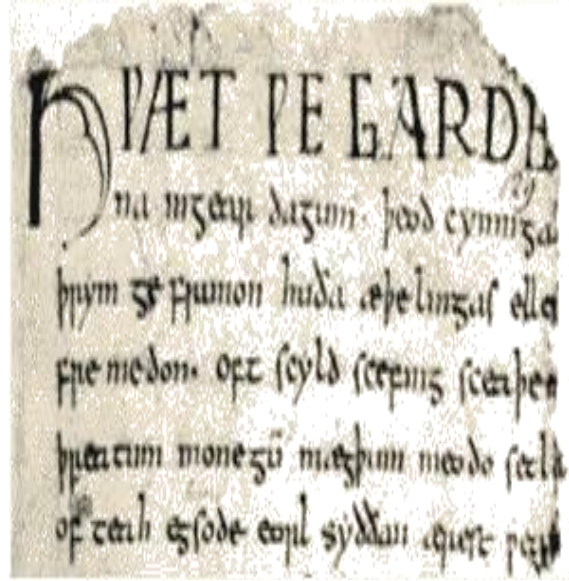 HǷÆT ǷE GARDE
na ingear dagum. þeod cyninga
þrym ge frunon huða æþelingas elle
fremedon. oft scyld scefing sceaþe
þreatum monegū mægþum meodo setla
of teah egsode eorl syððan ærest ƿear